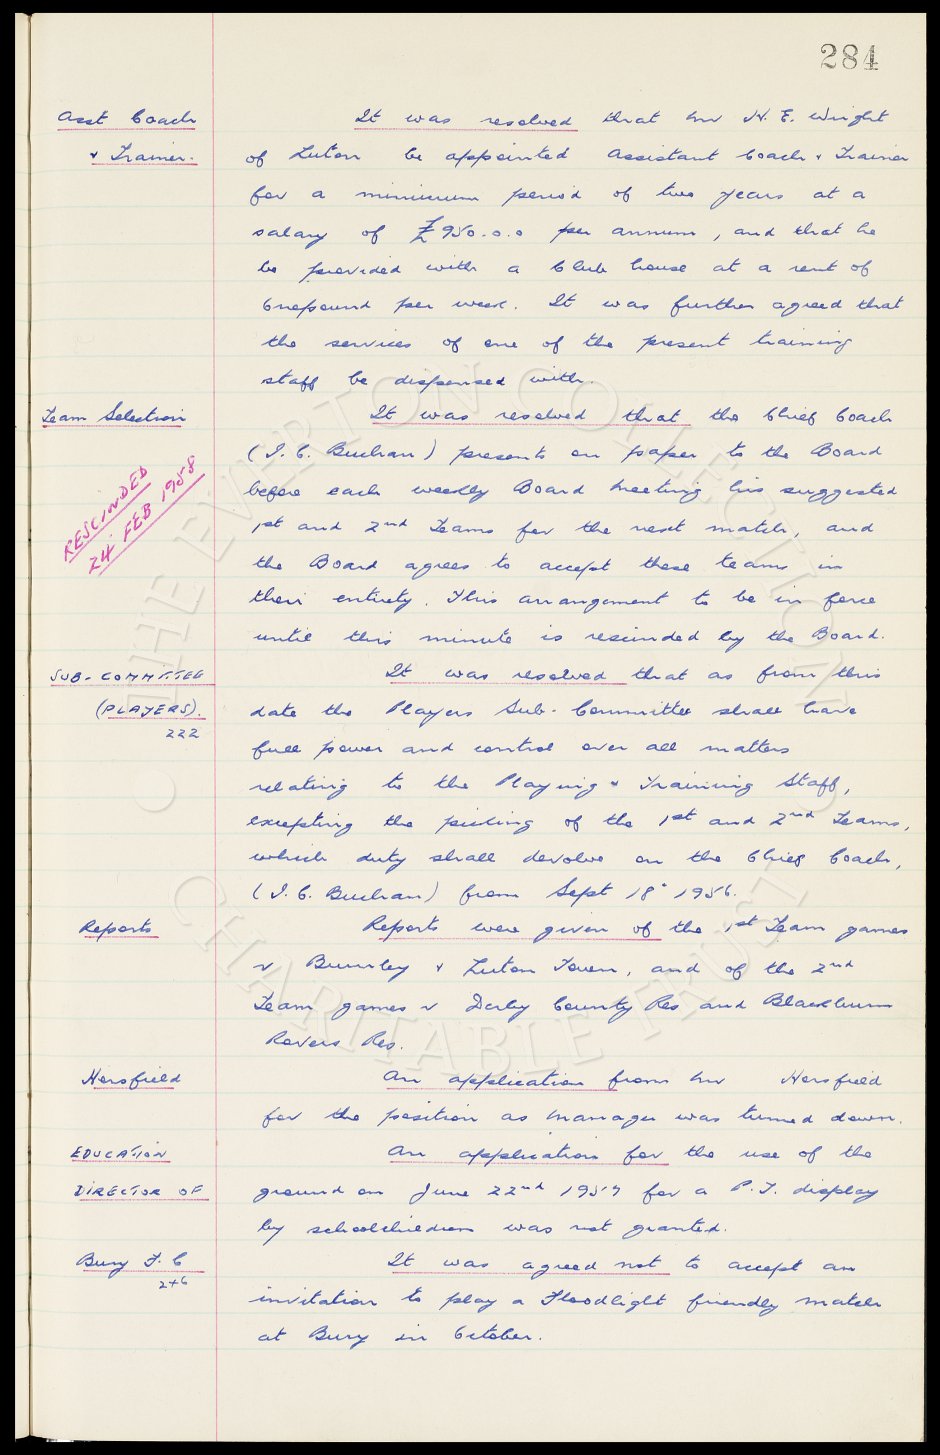 284
Asst Coach
It was resolved that Mr H. E. Wright
& Trainer.
of Luton be appointed Assistant Coach & Trainer
for a minimum period of two years at a
salary of £950.0.0 per annum, and that he
be provided with a Club house at a rent of
Onepound per week. It was further agreed that
the services of one of the present training
staff be dispensed with.
Team Selection
It was resolved that the Chief Coach
(I. C. Buchan) presents on paper to the Board
before each weekly Board Meeting his suggested
RESCINDED
24 FEB 1958
1st and 2nd Teams for the next match, and
the Board agrees to accept these teams in
their entirety. This arrangement to be in force
until this minute is rescinded by the Board.
SUB-COMMITTEE
It was resolved that as from this
(PLAYERS).
date the Players Sub-Committee shall have
222
full power and control over all matters
relating to the Playing & Training Staff,
excepting the picking of the 1st and 2nd Teams,
which duty shall devolve on the Chief Coach,
(I. C. Buchan) from Sept 18" 1956.
Reports
Reports were given of the 1st Team games
v Burnley & Luton Town, and of the 2nd
Team games v Derby County Res and Blackburn
Rovers Res.
Horsfield
An application from Mr Horsfield
for the position as Manager was turned down.
EDUCATION
An application for the use of the
DIRECTOR OF
ground on June 22nd 1957 for a P.T. display
by schoolchildren was not granted.
Bury F. C
It was agreed not to accept an
246
invitation to play a Floodlight friendly match
at Bury in October.
• THE EVERTON COLLECTION •
CHARITABLE TRUST